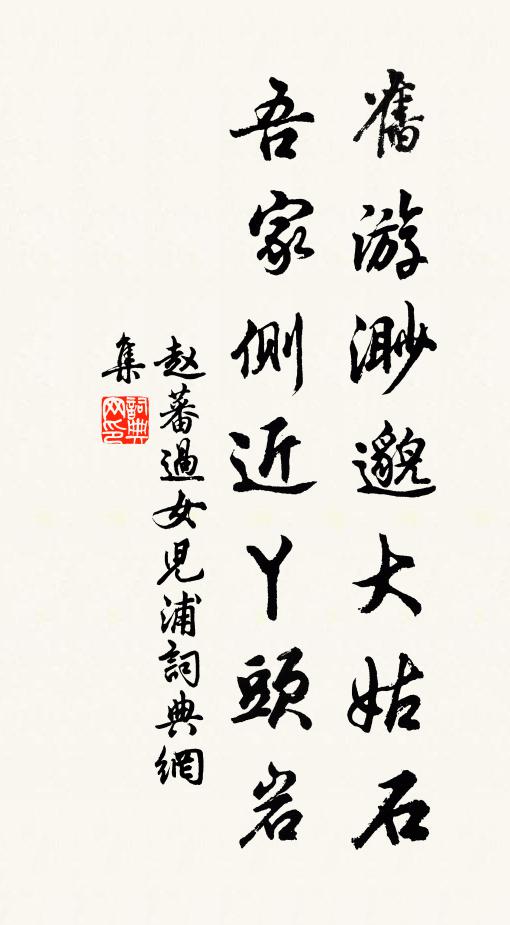 舊游渺邈大姑石
吾家側近丫頭岩
赵蕃過女兒浦詞典網
集
詞典網印